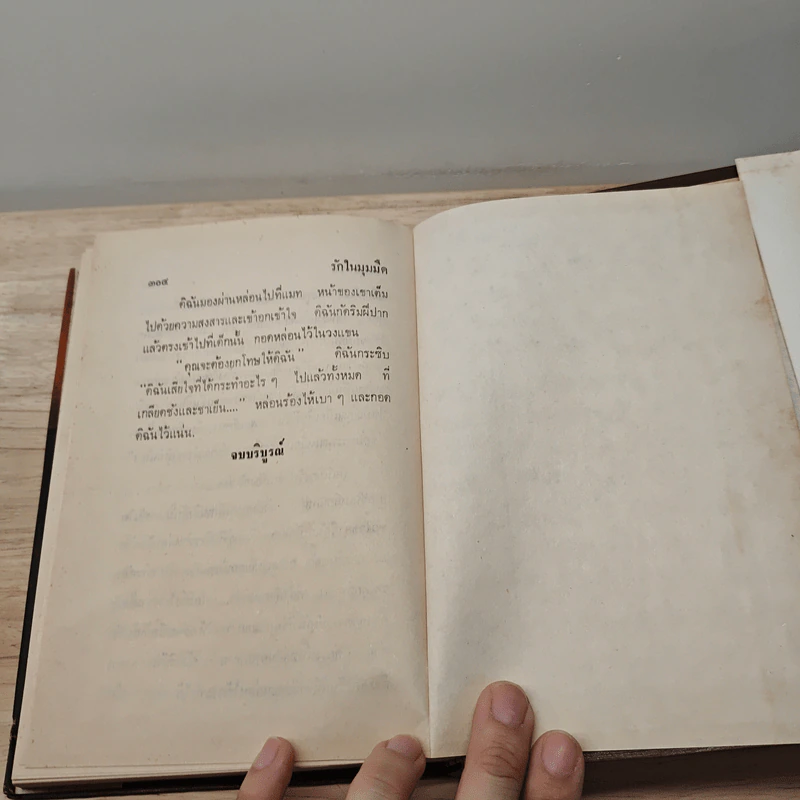 ๓๐๔
รักในมุมมืด
ดิฉันมองผ่านหล่อนไปที่แมท หน้าของเขาเต็ม
ไปด้วยความสงสารและเข้าอกเข้าใจ ดิฉันกัดริมฝีปาก
แล้วตรงเข้าไปที่เด็กนั้น กอดหล่อนไว้ในวงแขน
"คุณจะต้องยกโทษให้ดิฉัน" ดิฉันกระซิบ
"ดิฉันเสียใจที่ได้กระทำอะไร ๆ ไปแล้วทั้งหมด ที่
เกลียดชังและชาเย็น...." หล่อนร้องไห้เบา ๆ และกอด
ดิฉันไว้แน่น.
จบบริบูรณ์